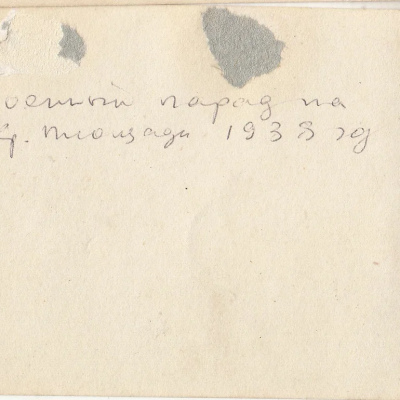 оенный парад на
Кр. площади 1938 год